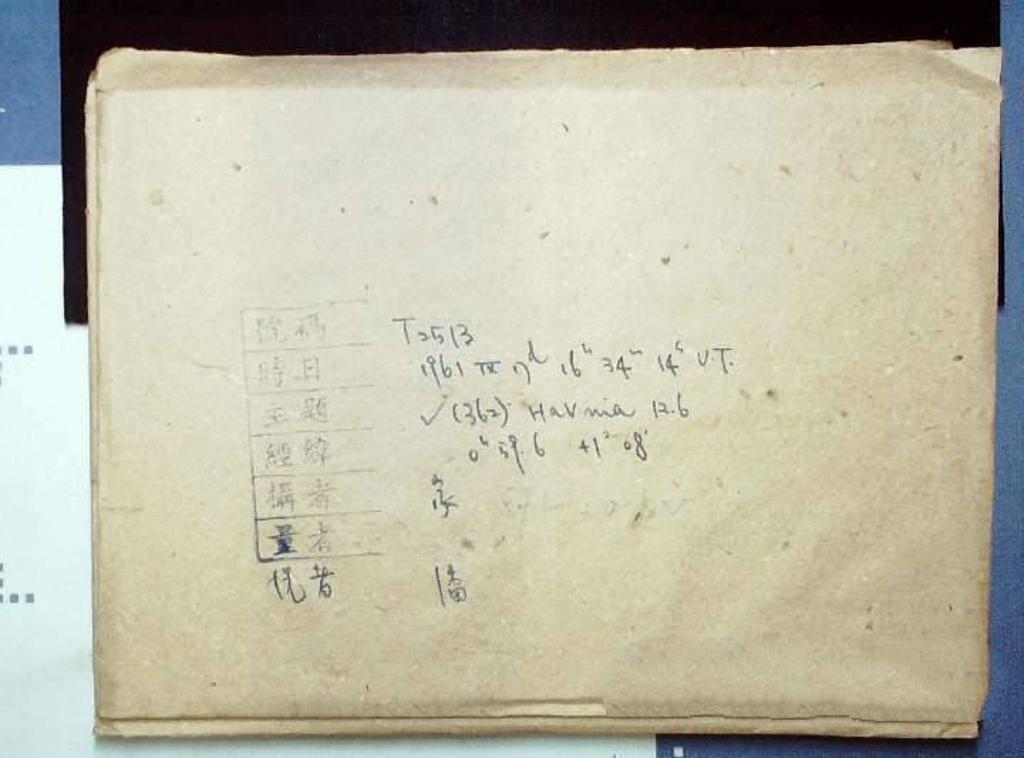 號碼 T2513
時日 1961 IX 17ᵈ 16ʰ 34ᵐ 14ˢ U.T.
主題 ✓ (362) Havnia 12.6
經緯 0ʰ 59.6 +1° 08'
攝者
量者
者